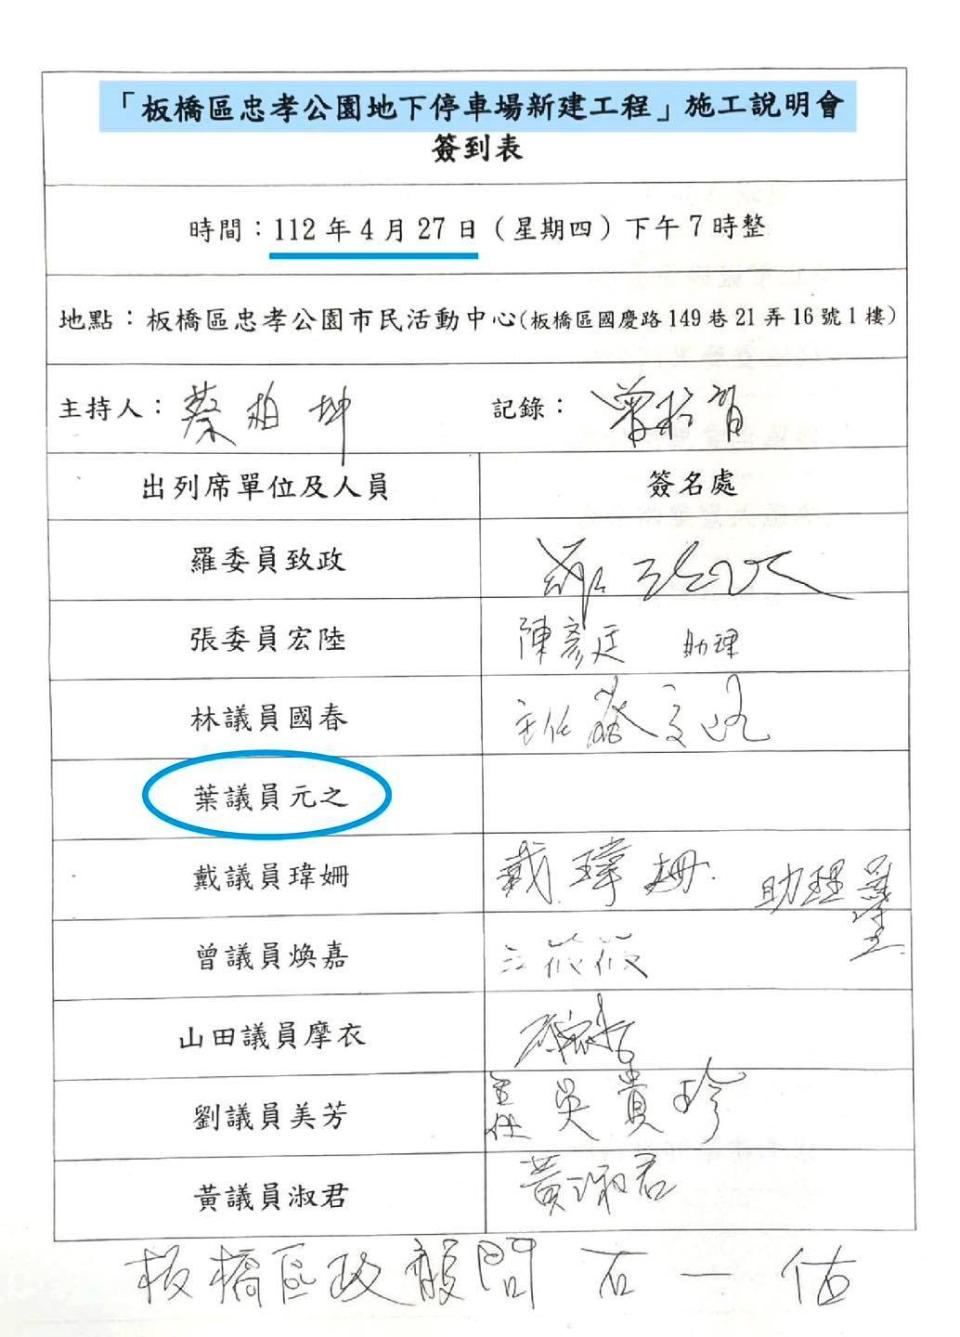 「板橋區忠孝公園地下停車場新建工程」施工說明會
簽到表
時間：112 年 4 月 27 日（星期四）下午 7 時整
地點：板橋區忠孝公園市民活動中心(板橋區國慶路 149 巷 21 弄 16 號 1 樓)
主持人：蔡柏坤 記錄：
出列席單位及人員 簽名處
羅委員致政 羅致政
張委員宏陸 陳彥廷 助理
林議員國春 主任
葉議員元之
戴議員瑋姍 戴瑋姍 助理
曾議員煥嘉
山田議員摩衣
劉議員美芳 主任 吳貴珍
黃議員淑君 黃淑君
板橋區政顧問 石一佑